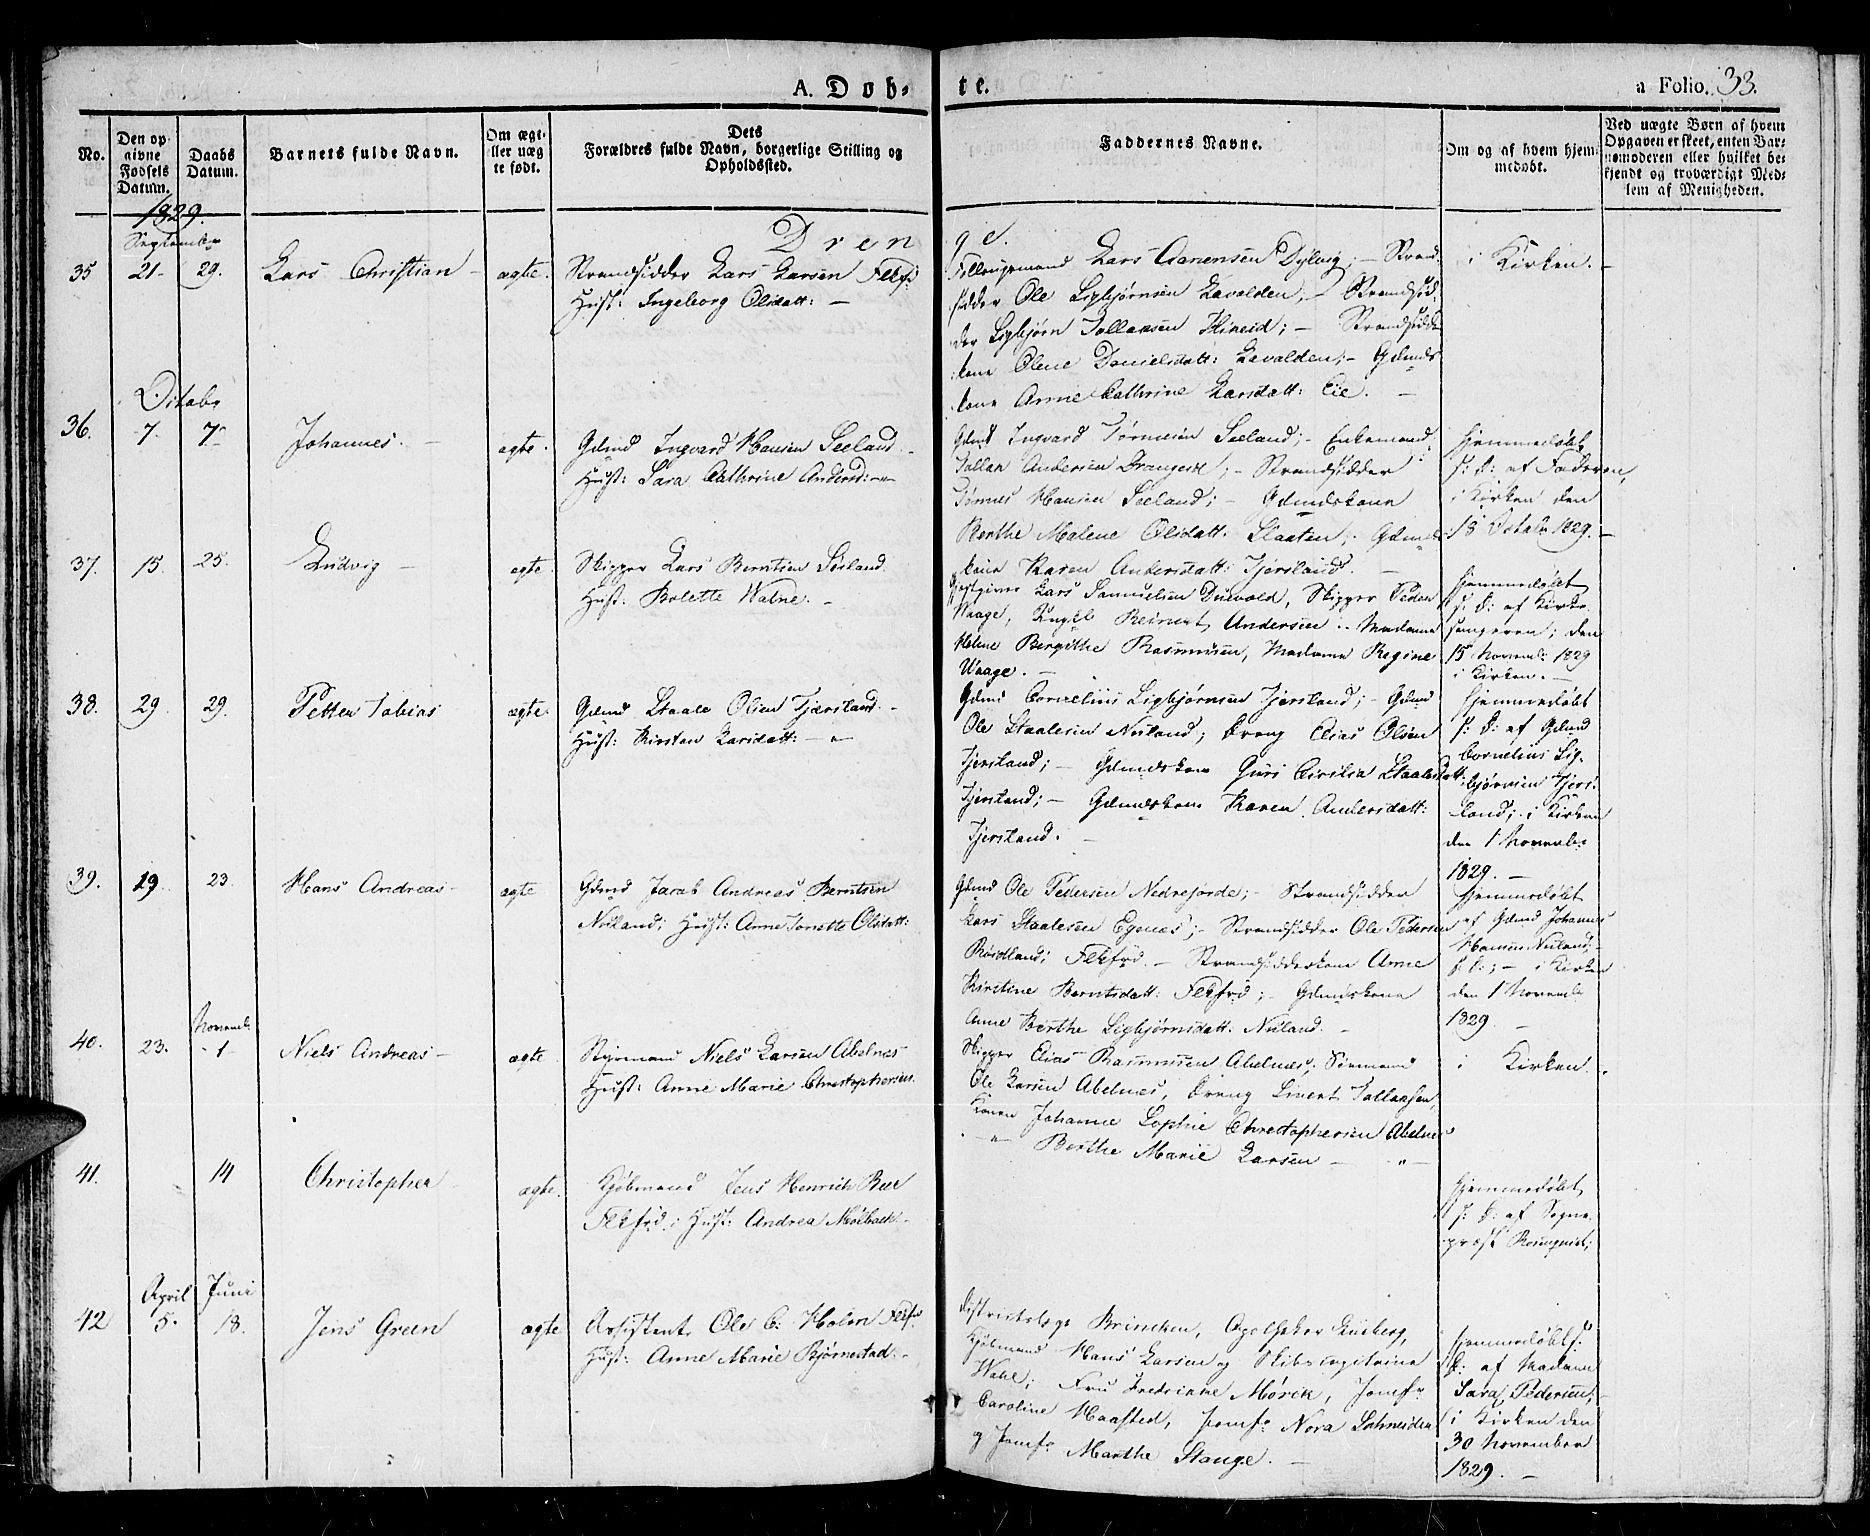 A. Döb-
te.
a Folio. 33.
No.
Den op-
givne
Fødsels
Datum.
Daabs
Datum.
Barnets fulde Navn.
Om ægt-
eller uæg
te født.
Dets
Forældres fulde Navn, borgerlige Stilling og
Opholdssted.
Faddernes Navne.
Om og af hvem hjem-
medøbt.
Ved uægte Børn af hvem
Opgaven er skeet, enten Bar-
nemoderen eller hvilket be-
kjendt og troværdigt Med-
lem af Menigheden.
1829.
Dren
ge.
September
35 21. 29. Lars Christian ægte. Strandsidder Lars Larsen Flekf:
Hust: Ingeborg Olsdatt: —
Lars Dyhvig; — Strand-
sidder Ole Sigbjørnsen Lavolden, — Strandsid-
der Sigbjørn Tollaksen — Strandsidder
kone Olene Danielsdatt: Lavolden; — Gdmds
kone Anne Cathrine Larsdatt: Eie. —
i Kirken. —
October
36. 7. 7. Johannes. — ægte. Gdmd Ingvard Hansen Seeland. —
Hust: Sara Cathrine Andersd: —
Gdmd Ingvard Tønnesen Seeland; — Enkemand
Tollak Andersen Drangeid; — Strandsidder
Tønnes Hansen Seeland; — Gdmdskone
Berthe Malene Olsdatt: Staaten; — Gdmds-
kone Karen Andersdatt: Tjersland. —
hjemmedøbt
s: d: af Faderen,
i Kirken den
18 Octobr 1829. —
37. 15. 25. Ludvig — ægte. Skipper Lars Berntsen Seeland
Hust: Bolette Wahne. —
Gjestgiver Lars Samuelsen Duevold, Skipper Peder
Waage, Reinert Andersen .. Madame
Helene Bergitthe Rasmusen, Madame Regine
Waage. —
hjemmedøbt
s: d: af Kirke-
sangeren; den
15 Novemb: 1829
i Kirken. —
38. 29. 29. Petter Tobias ægte. Gdmd Staale Olsen Tjersland. —
Hust: Kirsten Larsdatt: — " —
Gdmd Cornelius Sigbjørnsen Tjersland; — Gdmd
Ole Staalesen Nuland; Dreng Elias Olsen
Tjersland; — Gdmdskone Guri Cicilia Staalesdatt:
Tjersland; — Gdmdskone Karen Andersdatt:
Tjersland. —
hjemmedøbt
s: d: af Gdmd
Cornelius Sig-
bjørnsen Tjers-
land; i Kirken
den 1 Novembr
1829. —
39. 19. 23. Hans Andreas — ægte Gdmd Jacob Andreas Berntsen
Nuland; Hust: Anne Tonette Olsdatt:
Gdmd Ole Pedersen Nedrejorde; — Strandsidder
Lars Staalesen Egenes; — Strandsidder Ole Pedersen
Røisland; Flekfrd. — Strandsidderskone Anne
Kirstine Berntsdatt: Flekfrd; — Gdmdskone
Anne Berthe Sigbjørnsdatt: Nuland. —
hjemmedøbt
af Gdmd Johannes
Hansen Nuland
s: d:; — i Kirken
den 1 Novemb
1829. —
Novemb:
40. 23. 1 Niels Andreas — ægte Styrmand Niels Larsen Abelnes
Hust: Anne Marie Christophersen.
Skipper Elias Rasmusen Abelnes, Sømand
Ole Larsen Abelnes, Dreng Sivert Tollaksen,
Konen Johanne Sophie Christophersen Abelnes
— " — Berthe Marie Larsen — " —
i Kirken.
41. 14 Christopher ægte. Kjøbmand Jens Henrich Beer
Flekfrd; Hust: Andrea Mølbach. —
hjemmedøbt
s: d: af Sogne-
præst
April Juni
42 5. 18. Jens Green ægte Assistent Ole C: Holm Flekfr:
Hust: Anne Marie Bjørnestad. —
Districtslæge Brincken, Apotheker
Kjøbmand Hans Larsen og Skibscapitaine
Wahl; Fru Fredrikke Mørck, Jomfr
Caroline Haasted, Jomfr: Nora Schneider
og Jomfr: Marthe Stange. —
hjemmedøbt s:
d: af Madame
Sara Pedersen, —
i Kirken den
30 November
1829. —